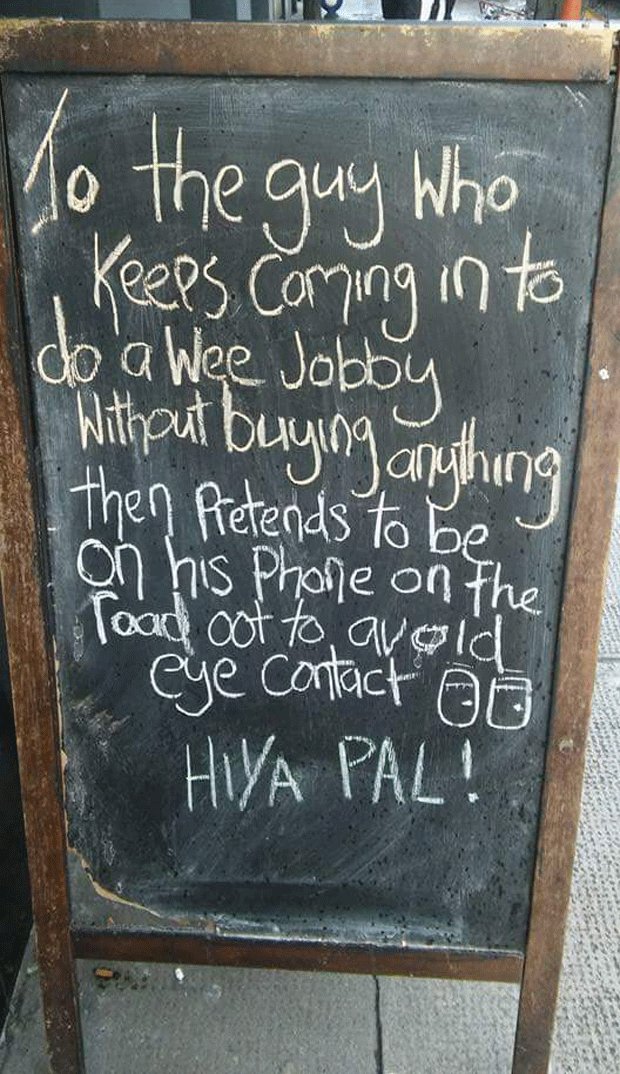 To the guy Who
Keeps Coming in to
do a Wee Jobby
Without buying anything
then Pretends to be
on his Phone on the
road oot to avoid
eye contact
HIYA PAL!